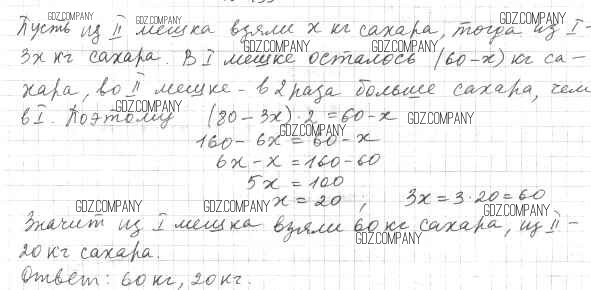 Пусть из II мешка взяли x кг сахара, тогда из I-
3x кг сахара. В I мешке осталось (60-x) кг са-
хара, во II мешке - в 2 раза больше сахара, чем
в I. Поэтому (80-3x)·2=60-x
160-6x=60-x
6x-x=160-60
5x=100
x=20, 3x=3·20=60
Значит из I мешка взяли 60 кг сахара, из II-
20 кг сахара.
Ответ: 60 кг, 20 кг.
GDZ.COMPANY
GDZ.COMPANY
GDZ.COMPANY
GDZ.COMPANY
GDZ.COMPANY
GDZ.COMPANY
GDZ.COMPANY
GDZ.COMPANY
GDZ.COMPANY
GDZ.COMPANY
GDZ.COMPANY
GDZ.COMPANY